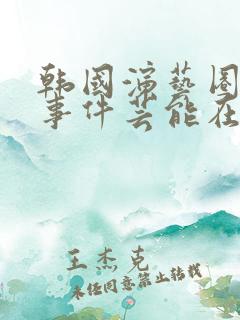 韩国演艺圈
事件芸能在
王杰克
未经同意禁止转载